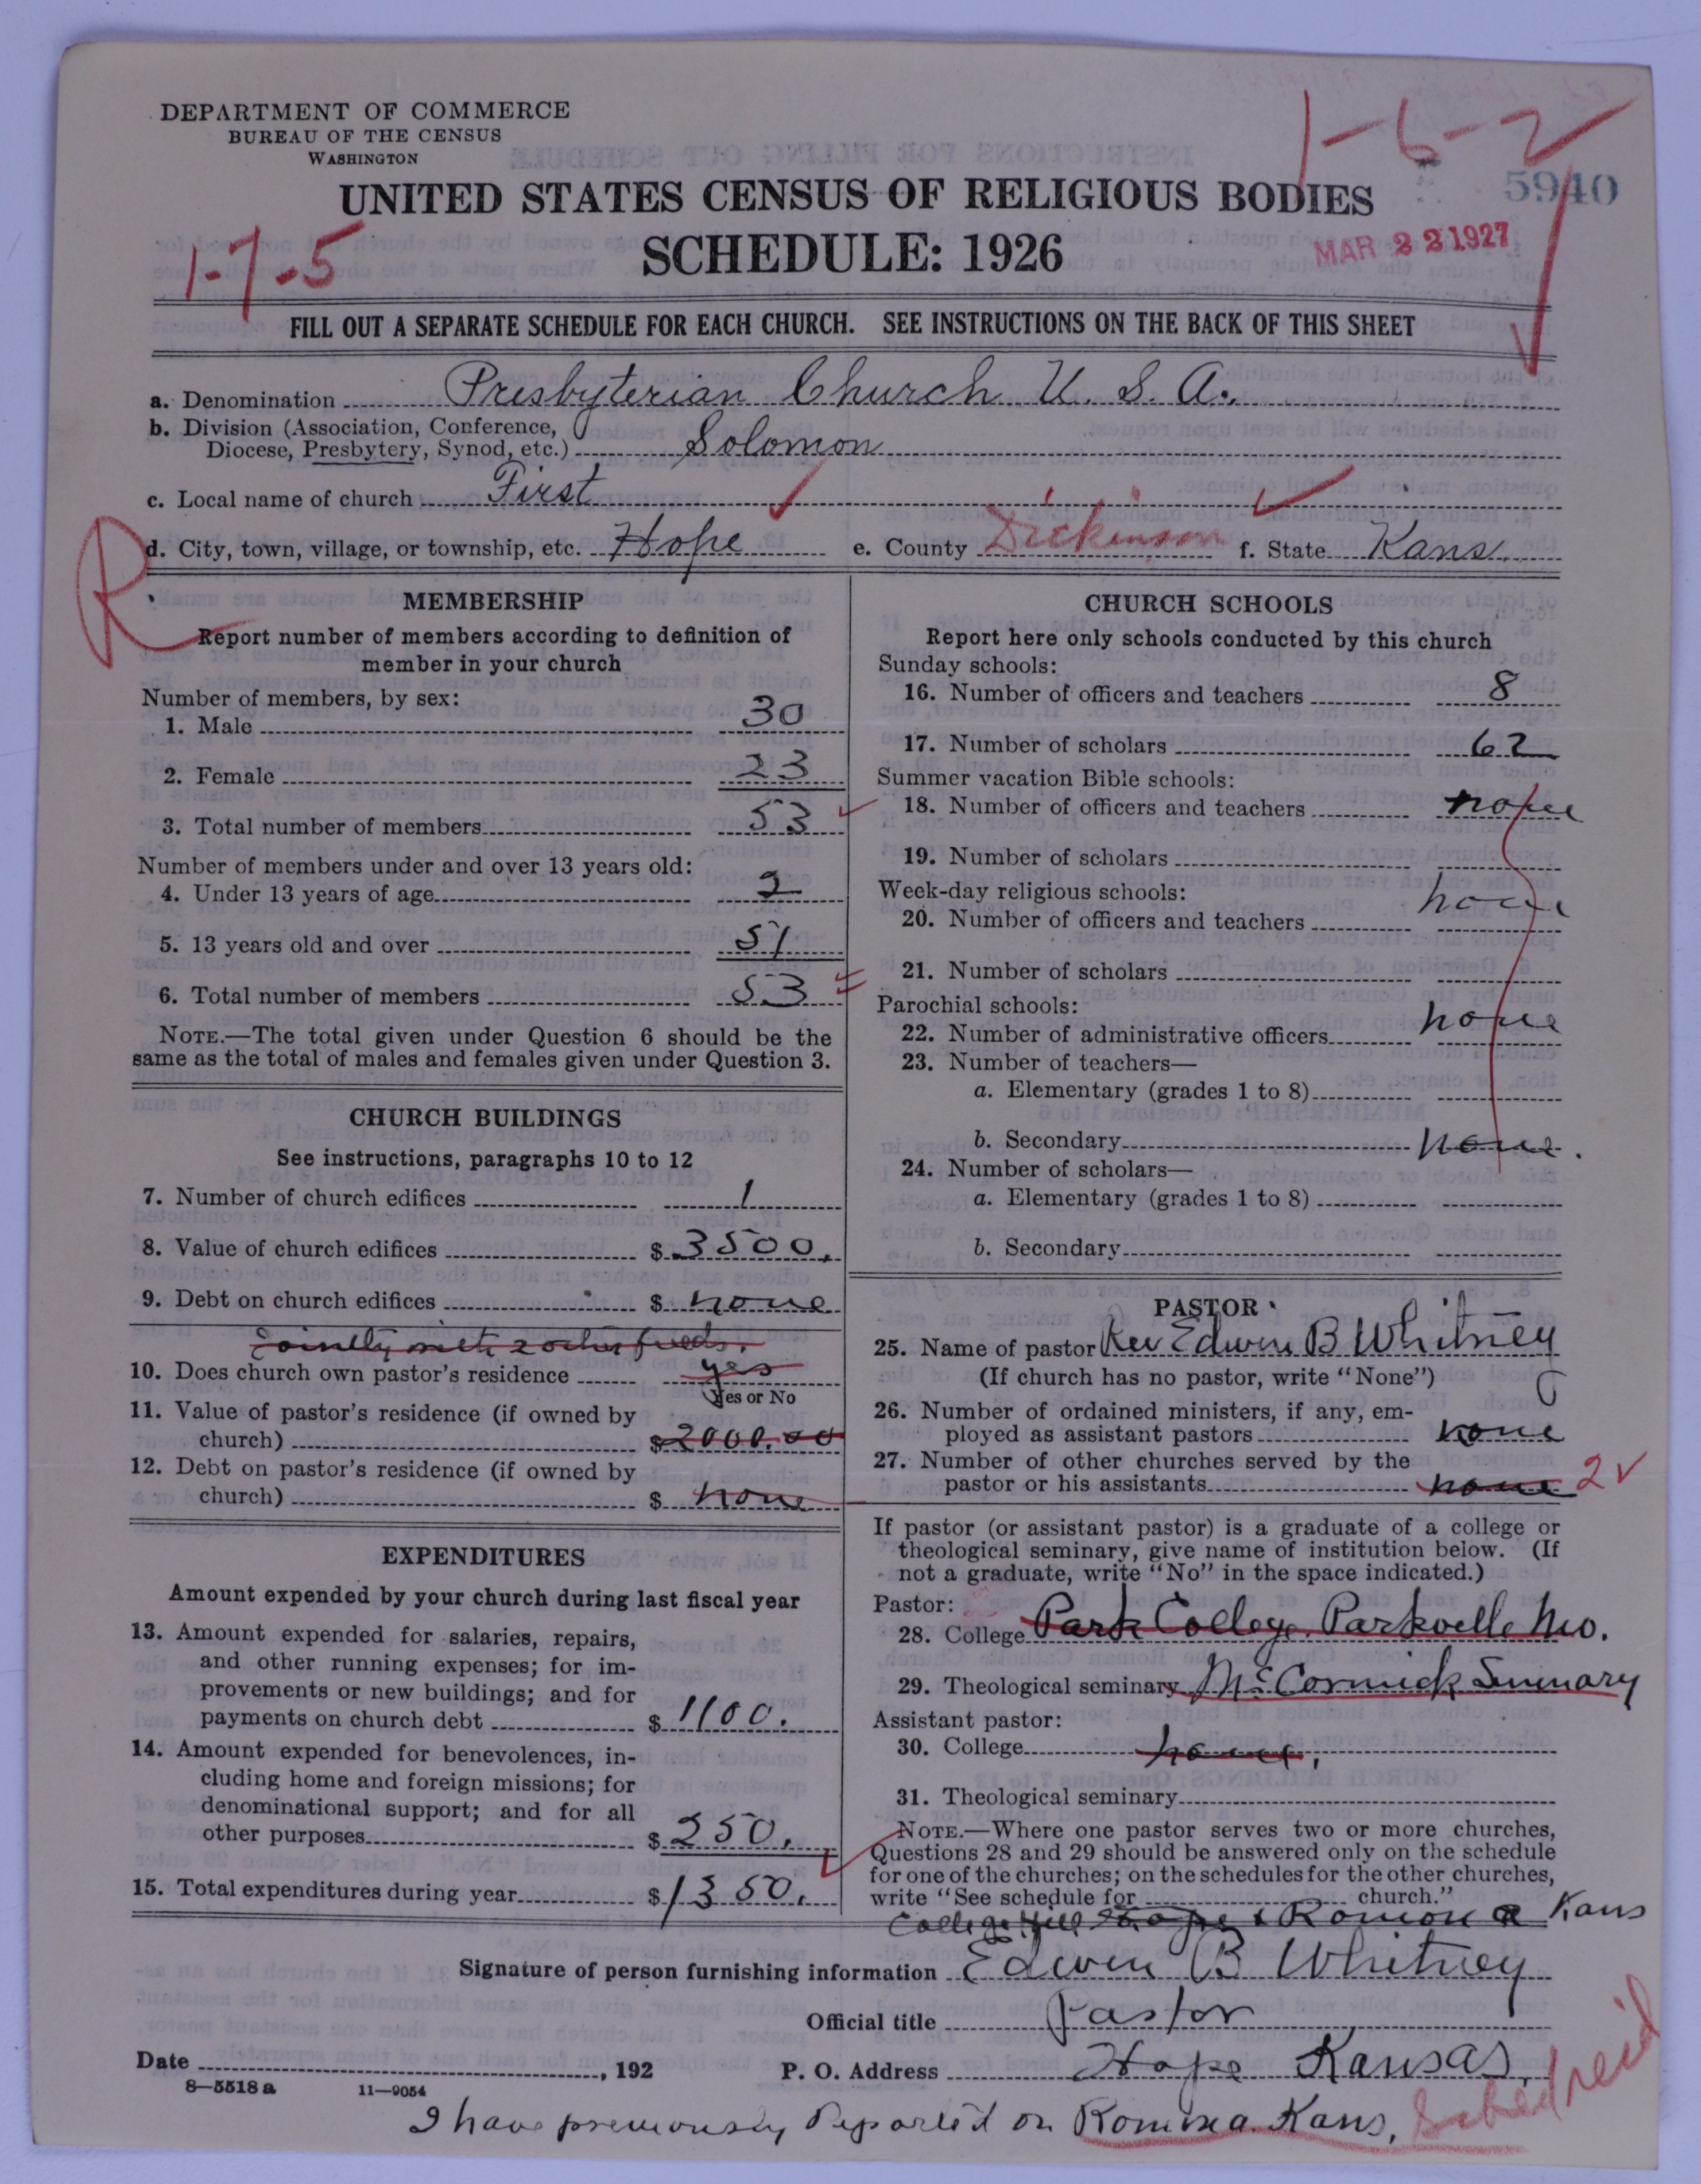 DEPARTMENT OF COMMERCE
BUREAU OF THE CENSUS
WASHINGTON
1-6-2
5940
UNITED STATES CENSUS OF RELIGIOUS BODIES
SCHEDULE: 1926
MAR 22 1927
1-7-5
FILL OUT A SEPARATE SCHEDULE FOR EACH CHURCH. SEE INSTRUCTIONS ON THE BACK OF THIS SHEET
a. Denomination Presbyterian Church U. S. A.
b. Division (Association, Conference,
Diocese, Presbytery, Synod, etc.) Solomon
c. Local name of church First
R
d. City, town, village, or township, etc. Hope e. County Dickinson f. State Kans.
MEMBERSHIP
Report number of members according to definition of
member in your church
Number of members, by sex:
1. Male 30
2. Female 23
3. Total number of members 53
Number of members under and over 13 years old:
4. Under 13 years of age 2
5. 13 years old and over 51
6. Total number of members 53
NOTE.—The total given under Question 6 should be the
same as the total of males and females given under Question 3.
CHURCH BUILDINGS
See instructions, paragraphs 10 to 12
7. Number of church edifices 1
8. Value of church edifices $ 3500.
9. Debt on church edifices $ none
jointly with 2 other fields.
10. Does church own pastor's residence yes
Yes or No
11. Value of pastor's residence (if owned by
church) $ 2000.00
12. Debt on pastor's residence (if owned by
church) $ none
EXPENDITURES
Amount expended by your church during last fiscal year
13. Amount expended for salaries, repairs,
and other running expenses; for im-
provements or new buildings; and for
payments on church debt $ 1100.
14. Amount expended for benevolences, in-
cluding home and foreign missions; for
denominational support; and for all
other purposes $ 250.
15. Total expenditures during year $ 1350.
CHURCH SCHOOLS
Report here only schools conducted by this church
Sunday schools:
16. Number of officers and teachers 8
17. Number of scholars 62
Summer vacation Bible schools:
18. Number of officers and teachers none
19. Number of scholars
Week-day religious schools: none
20. Number of officers and teachers
21. Number of scholars
Parochial schools: none
22. Number of administrative officers
23. Number of teachers—
a. Elementary (grades 1 to 8)
b. Secondary none.
24. Number of scholars—
a. Elementary (grades 1 to 8)
b. Secondary
PASTOR
25. Name of pastor Rev Edwin B Whitney
(If church has no pastor, write "None")
26. Number of ordained ministers, if any, em-
ployed as assistant pastors none
27. Number of other churches served by the
pastor or his assistants none 2
If pastor (or assistant pastor) is a graduate of a college or
theological seminary, give name of institution below. (If
not a graduate, write "No" in the space indicated.)
Pastor:
28. College Park College. Parkville Mo.
29. Theological seminary McCormick Seminary
Assistant pastor:
30. College none.
31. Theological seminary
NOTE.—Where one pastor serves two or more churches,
Questions 28 and 29 should be answered only on the schedule
for one of the churches; on the schedules for the other churches,
write "See schedule for church."
College Hill Hope & Ramona Kans
Signature of person furnishing information Edwin B Whitney
Official title Pastor
Date , 192 P. O. Address Hope Kansas,
8—5518 a 11—9054
I have previously Reported on Romona Kans,